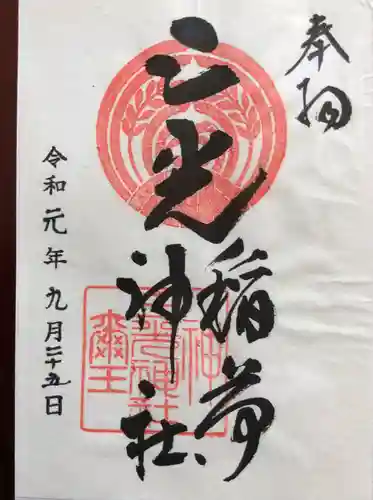 奉拝
三光稲荷
神社
令和元年九月二十五日